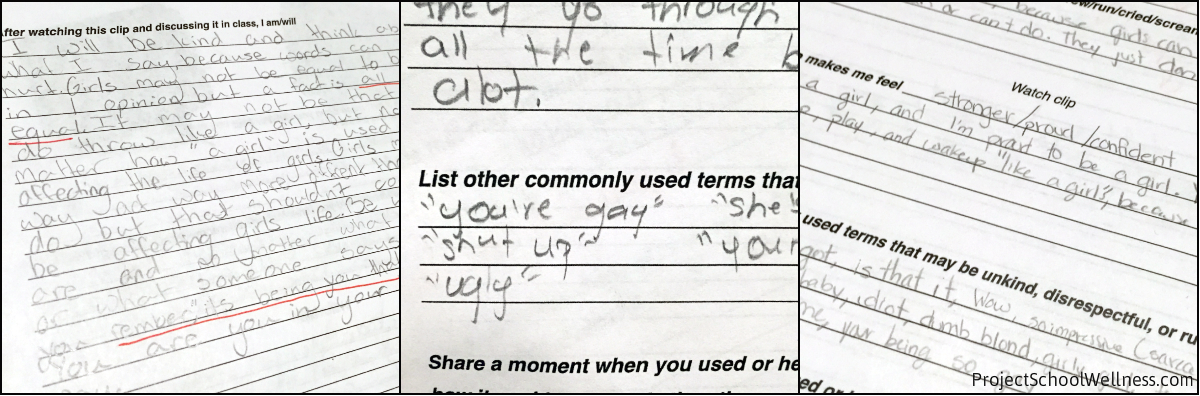 After watching this clip and discussing it in class, I am/will
I will be kind and think
what I say, because words can
hurt. Girls may not be equal to
in I opinion but a fact is all
equal. It may not be that
do throw like a girl but no
matter how "a girl" is used
affecting the life of girls. Girls
way and way more different
do, but that shouldn't
be affecting girls life. Be
are and no matter what
or what someone says
rember, "its being you
you are you in your
they go through
all the time
alot.
List other commonly used terms that
"you're gay" "she's
"shut up" "your
"ugly"
Share a moment when you used or
because girls can
or can't do. They just
makes me feel stronger/proud/confident
Watch clip
a girl, and I'm proud to be a girl.
play, and wakeup "like a girl", because
used terms that may be unkind, disrespectful, or
is that it, Wow, so impressive
baby, idiot, dumb blond, girly
your being so
ProjectSchoolWellness.com